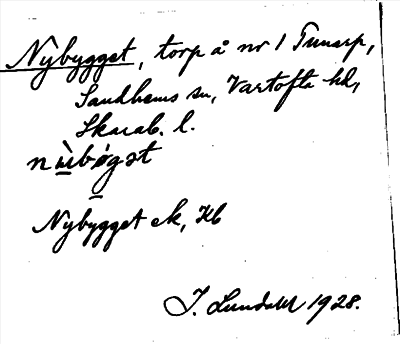 Nybygget, torp å nr 1 Tunarp,
Sandhems sn, Vartofta hd,
Skarab. l.
nùbøgət
Nybygget ek, Kb
J. Lundahl 1928.